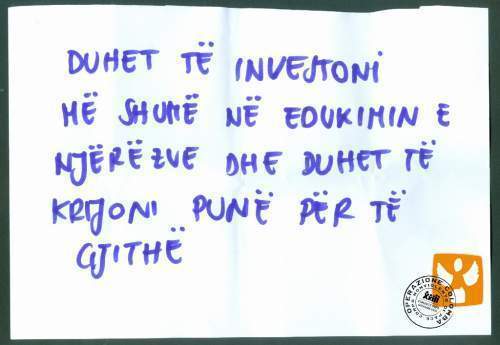 DUHET TË INVESTONI
MË SHUMË NË EDUKIMIN E
NJËRËZVE DHE DUHET TË
KRIJONI PUNË PËR TË
GJITHË
OPERAZIONE COLOMBA